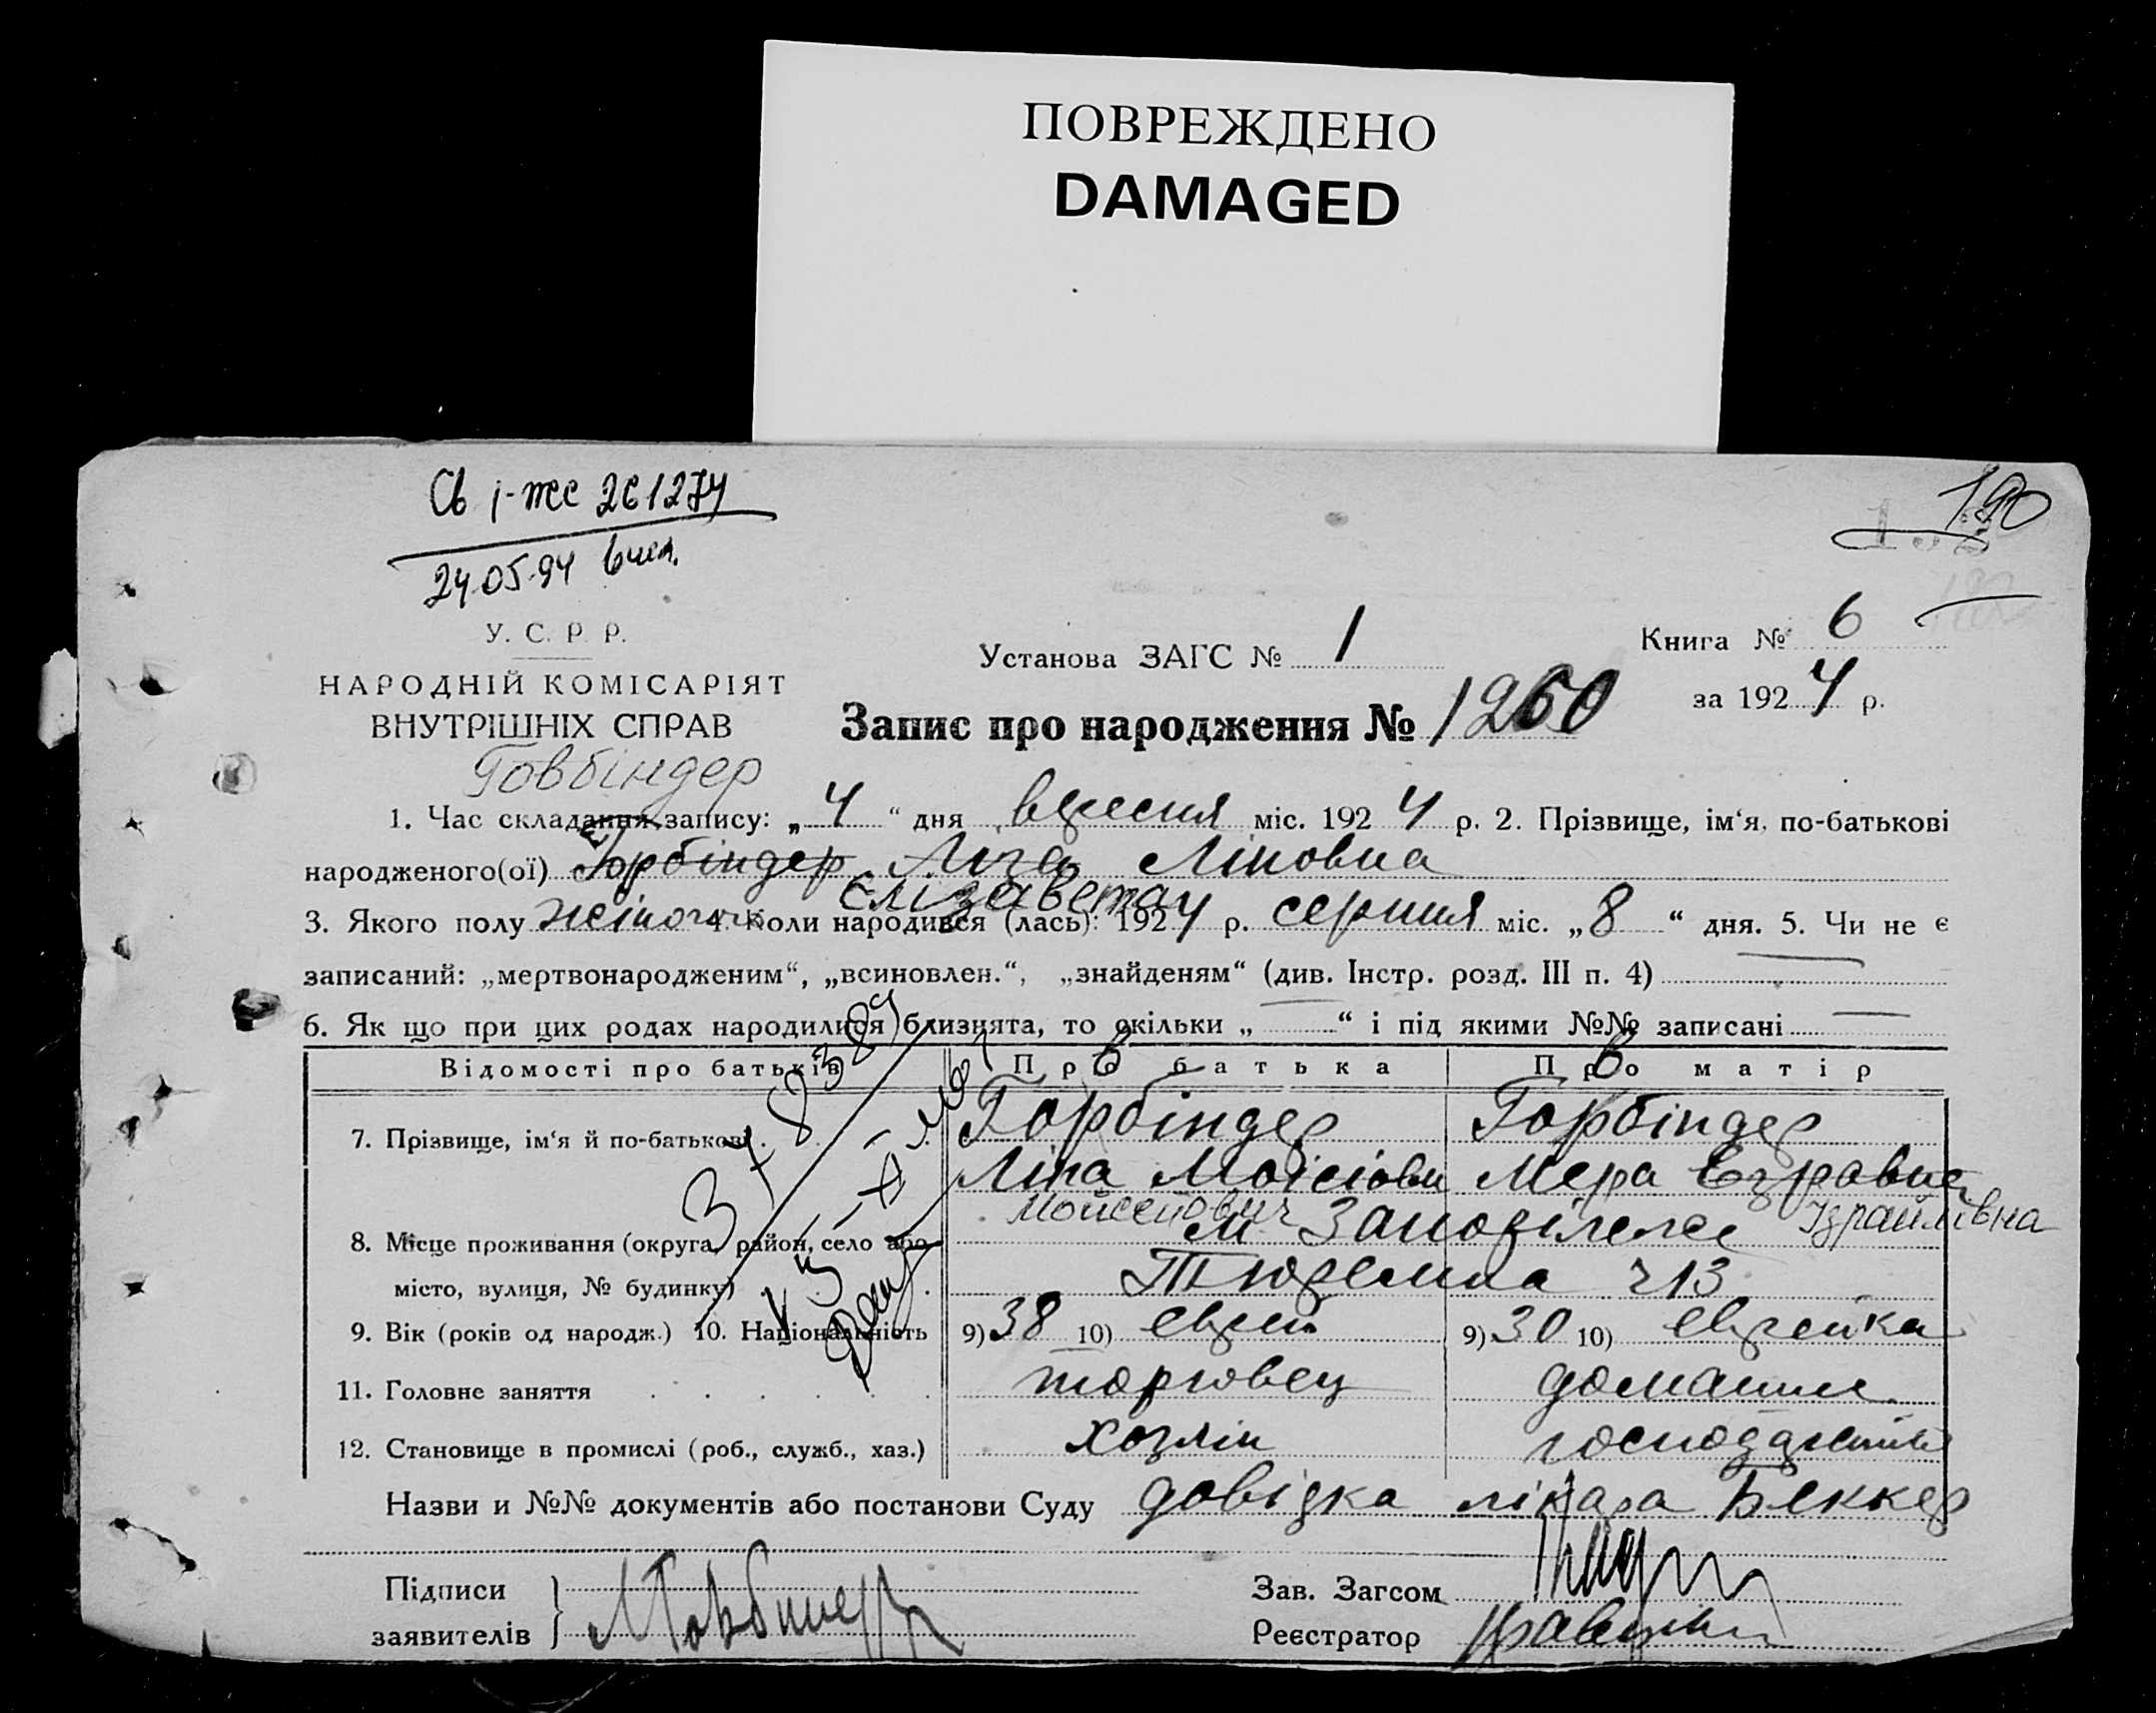 ПОВРЕЖДЕНО
DAMAGED
190
24.05.94
У. С. Р. Р.
Установа ЗАГС № 1
Книга № 6
НАРОДНІЙ КОМІСАРІЯТ
ВНУТРІШНІХ СПРАВ
за 1924 р.
Запис про народження № 1260
Говбіндер
1. Час складання запису: „4“ дня вересня міс. 1924 р. 2. Прізвище, ім‘я, по-батькові
народженого(ої) Горбіндер Ліза Ліповна
Єлізавета
3. Якого полу жіночого 4. Коли народився (лась): 1924 р. серпня міс. „8“ дня. 5. Чи не є
записаний: „мертвонародженим“, „всиновлен.“, „знайденям“ (див. Інстр. розд. III п. 4) —
6. Як що при цих родах народилися близнята, то скільки „—“ і під якими №№ записані —
Відомості про батьків Про батька Про матір
в в
7. Прізвище, ім‘я й по-батькові Горбіндер Горбіндер
Ліпа Мойсіови Мера Езравна
Мойсейович Ізраїлівна
8. Місце проживання (округа, район, село або м.
місто, вулиця, № будинку) Тюремна 13
9. Вік (років од народж.) 10. Національність 9) 38 10) еврей 9) 30 10) еврейка
11. Головне заняття торговец домашнє
12. Становище в промислі (роб., служб., хаз.) хозяін господарство
Назви и №№ документів або постанови Суду довідка лікара Беккер
Підписи
заявителів
Зав. Загсом
Реєстратор